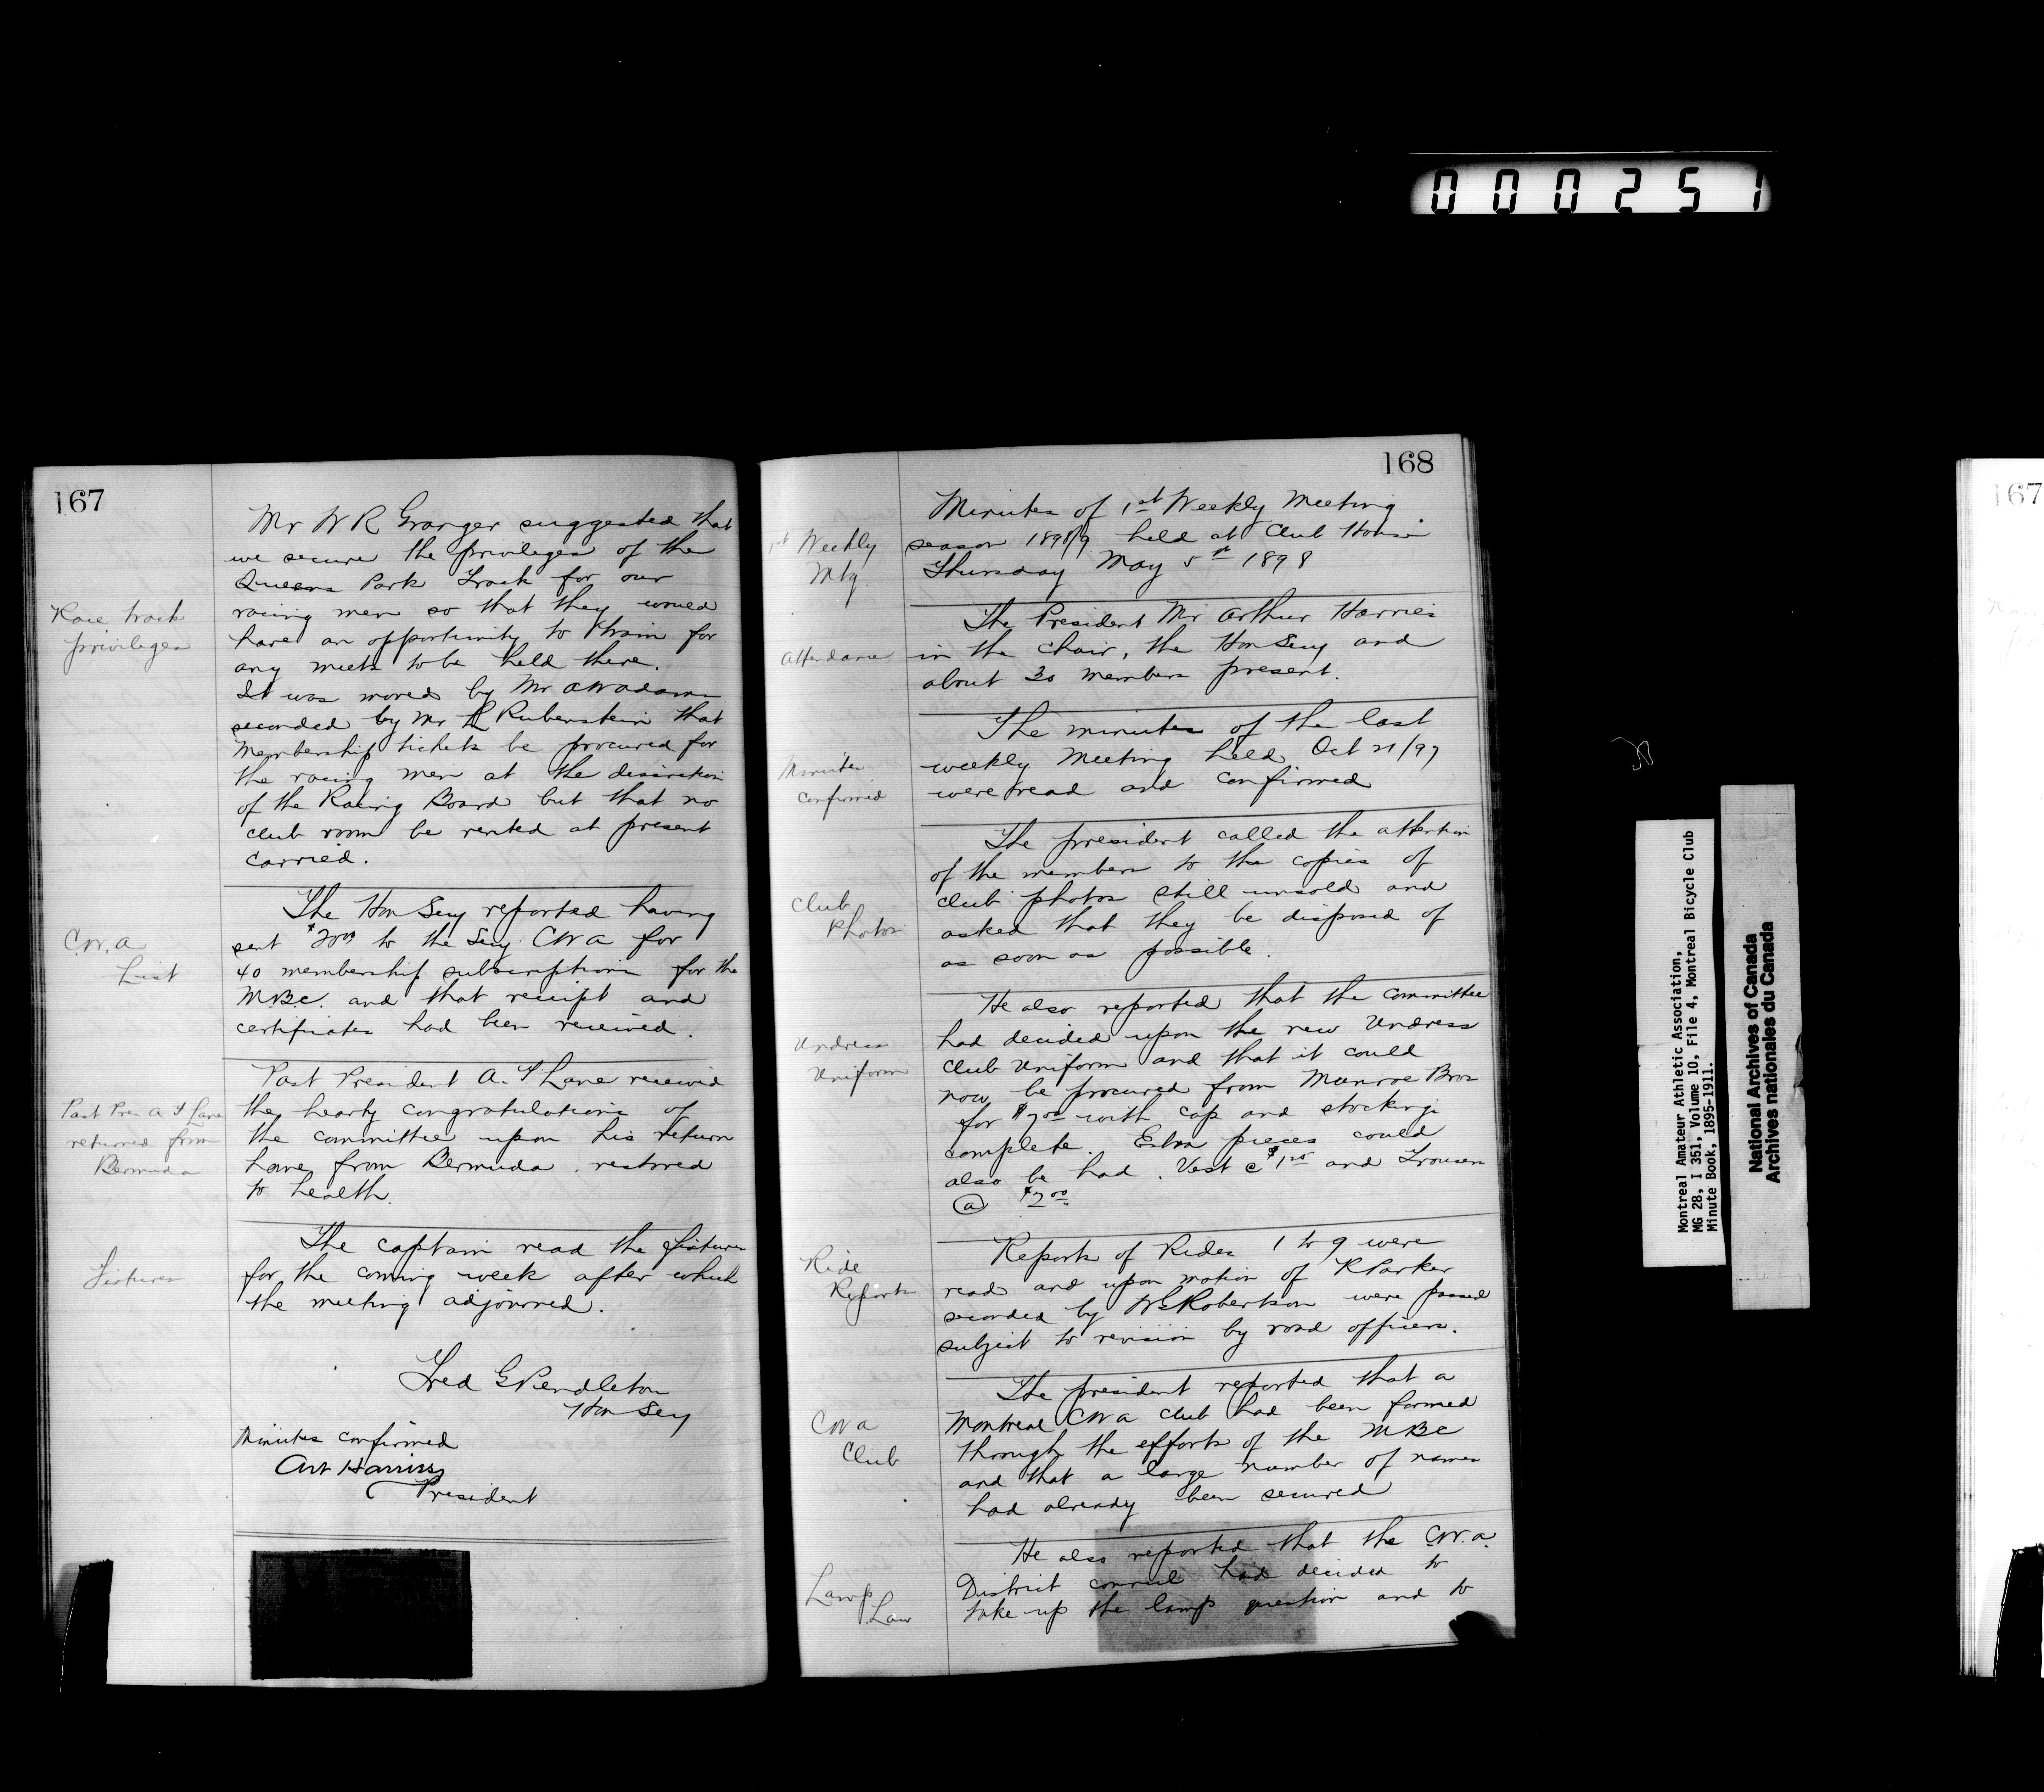 000251
167
Mr W R Granger suggested that
we secure the privileges of the
Queens Park Track for our
Race track
privileges
racing men so that they would
have an opportunity to train for
any meets to be held there.
It was moved by Mr A W Adams
seconded by Mr L Rubenstein that
membership tickets be procured for
the racing men at the discretion
of the Racing Board but that no
club room be rented at present
carried.
C.W.A
List
The Hon Secy reported having
sent $20.00 to the Secy. CWA for
40 membership subscriptions for the
M.B.C. and that receipt and
certificates had been received.
Past Pres A T Lane
returned from
Bermuda
Past President A. T Lane received
the hearty congratulations of
the committee upon his return
home from Bermuda. restored
to health.
Fixtures
The captain read the fixtures
for the coming week after which
the meeting adjourned.
Fred G Pendleton
Hon Secy
Minutes confirmed
Art Harries
President
168
1st Weekly
Mtg.
Minutes of 1st Weekly Meeting
season 1898/9 held at Club House
Thursday May 5th 1898
Attendance
The President Mr Arthur Harries
in the chair, the Hon Secy and
about 30 members present.
Minutes
confirmed
The minutes of the last
weekly Meeting held Oct 21/97
were read and confirmed
Club
Photos
The president called the attention
of the members to the copies of
club photos still unsold and
asked that they be disposed of
as soon as possible.
Undress
Uniform
He also reported that the committee
had decided upon the new Undress
Club Uniform and that it could
now be procured from Munroe Bros
for $7.00 with cap and stockings
complete. Extra pieces could
also be had. Vest @ $1.25 and Trousers
@ $2.00
Ride
Reports
Reports of Rides 1 to 9 were
read and upon motion of R Parker
seconded by Robertson were passed
subject to revision by road officers.
CWA
Club
The president reported that a
Montreal CWA club had been formed
through the efforts of the MBC
and that a large number of names
had already been secured
Lamp
Law
He also reported that the C.W.A.
District council had decided to
take up the lamp question and to
Montreal Amateur Athletic Association,
MG 28, I 351, Volume 10, File 4, Montreal Bicycle Club
Minute Book, 1895-1911.
National Archives of Canada
Archives nationales du Canada
167